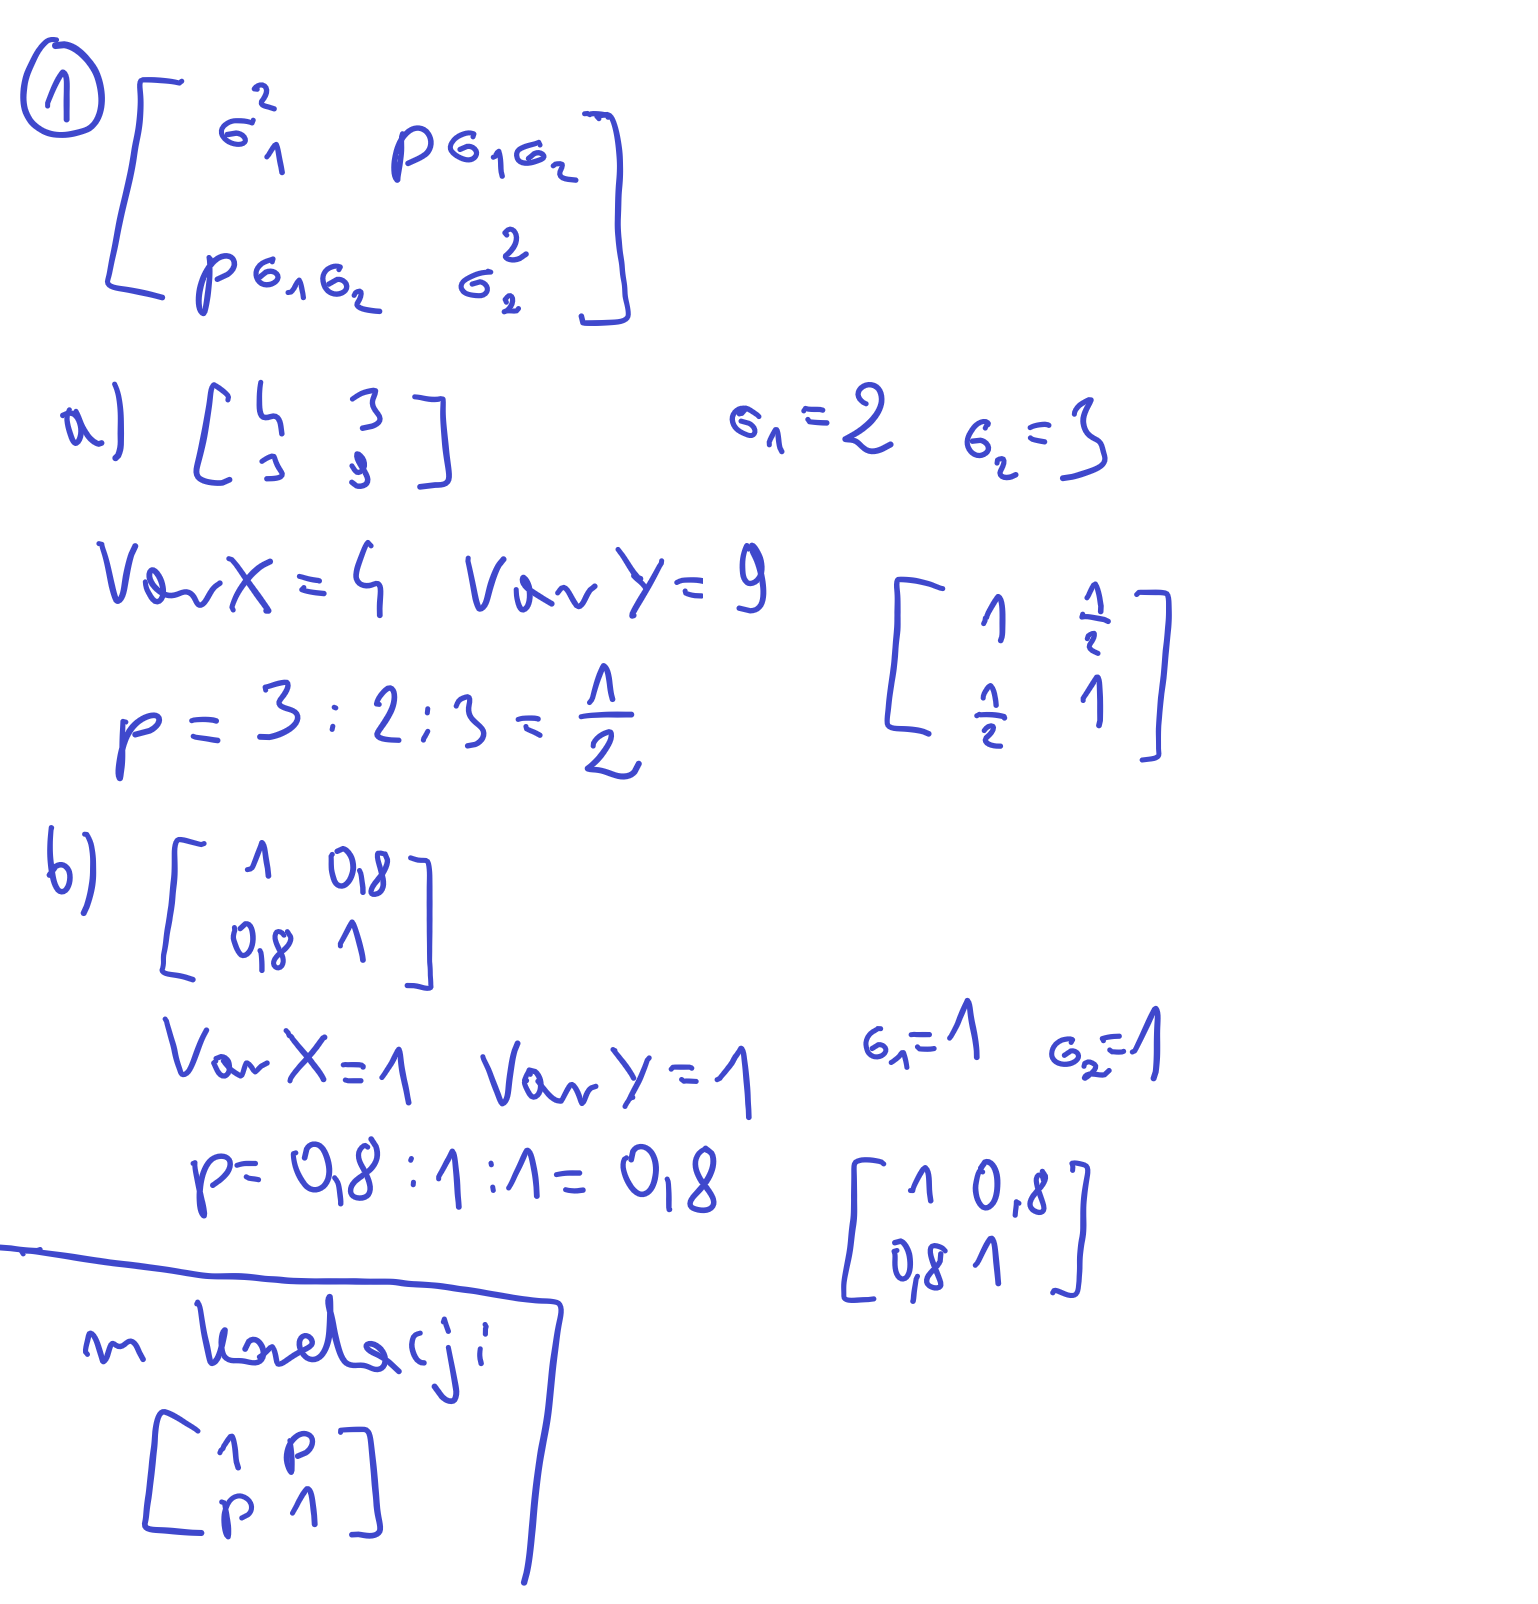 1
[ σ₁² ρσ₁σ₂ ]
[ ρσ₁σ₂ σ₂² ]
a) [ 4 3 ] σ₁ = 2 σ₂ = 3
[ 3 9 ]
Var X = 4 Var Y = 9
[ 1 1/2 ]
[ 1/2 1 ]
ρ = 3 : 2 : 3 = 1/2
b) [ 1 0,8 ]
[ 0,8 1 ]
Var X = 1 Var Y = 1 σ₁ = 1 σ₂ = 1
ρ = 0,8 : 1 : 1 = 0,8
[ 1 0,8 ]
[ 0,8 1 ]
m korelacji
[ 1 ρ ]
[ ρ 1 ]